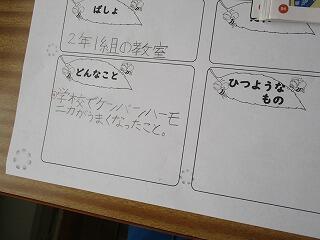 ばしょ
2年1組の教室
どんなこと
学校でケンバンハーモ
ニカがうまくなったこと。
ひつような
もの